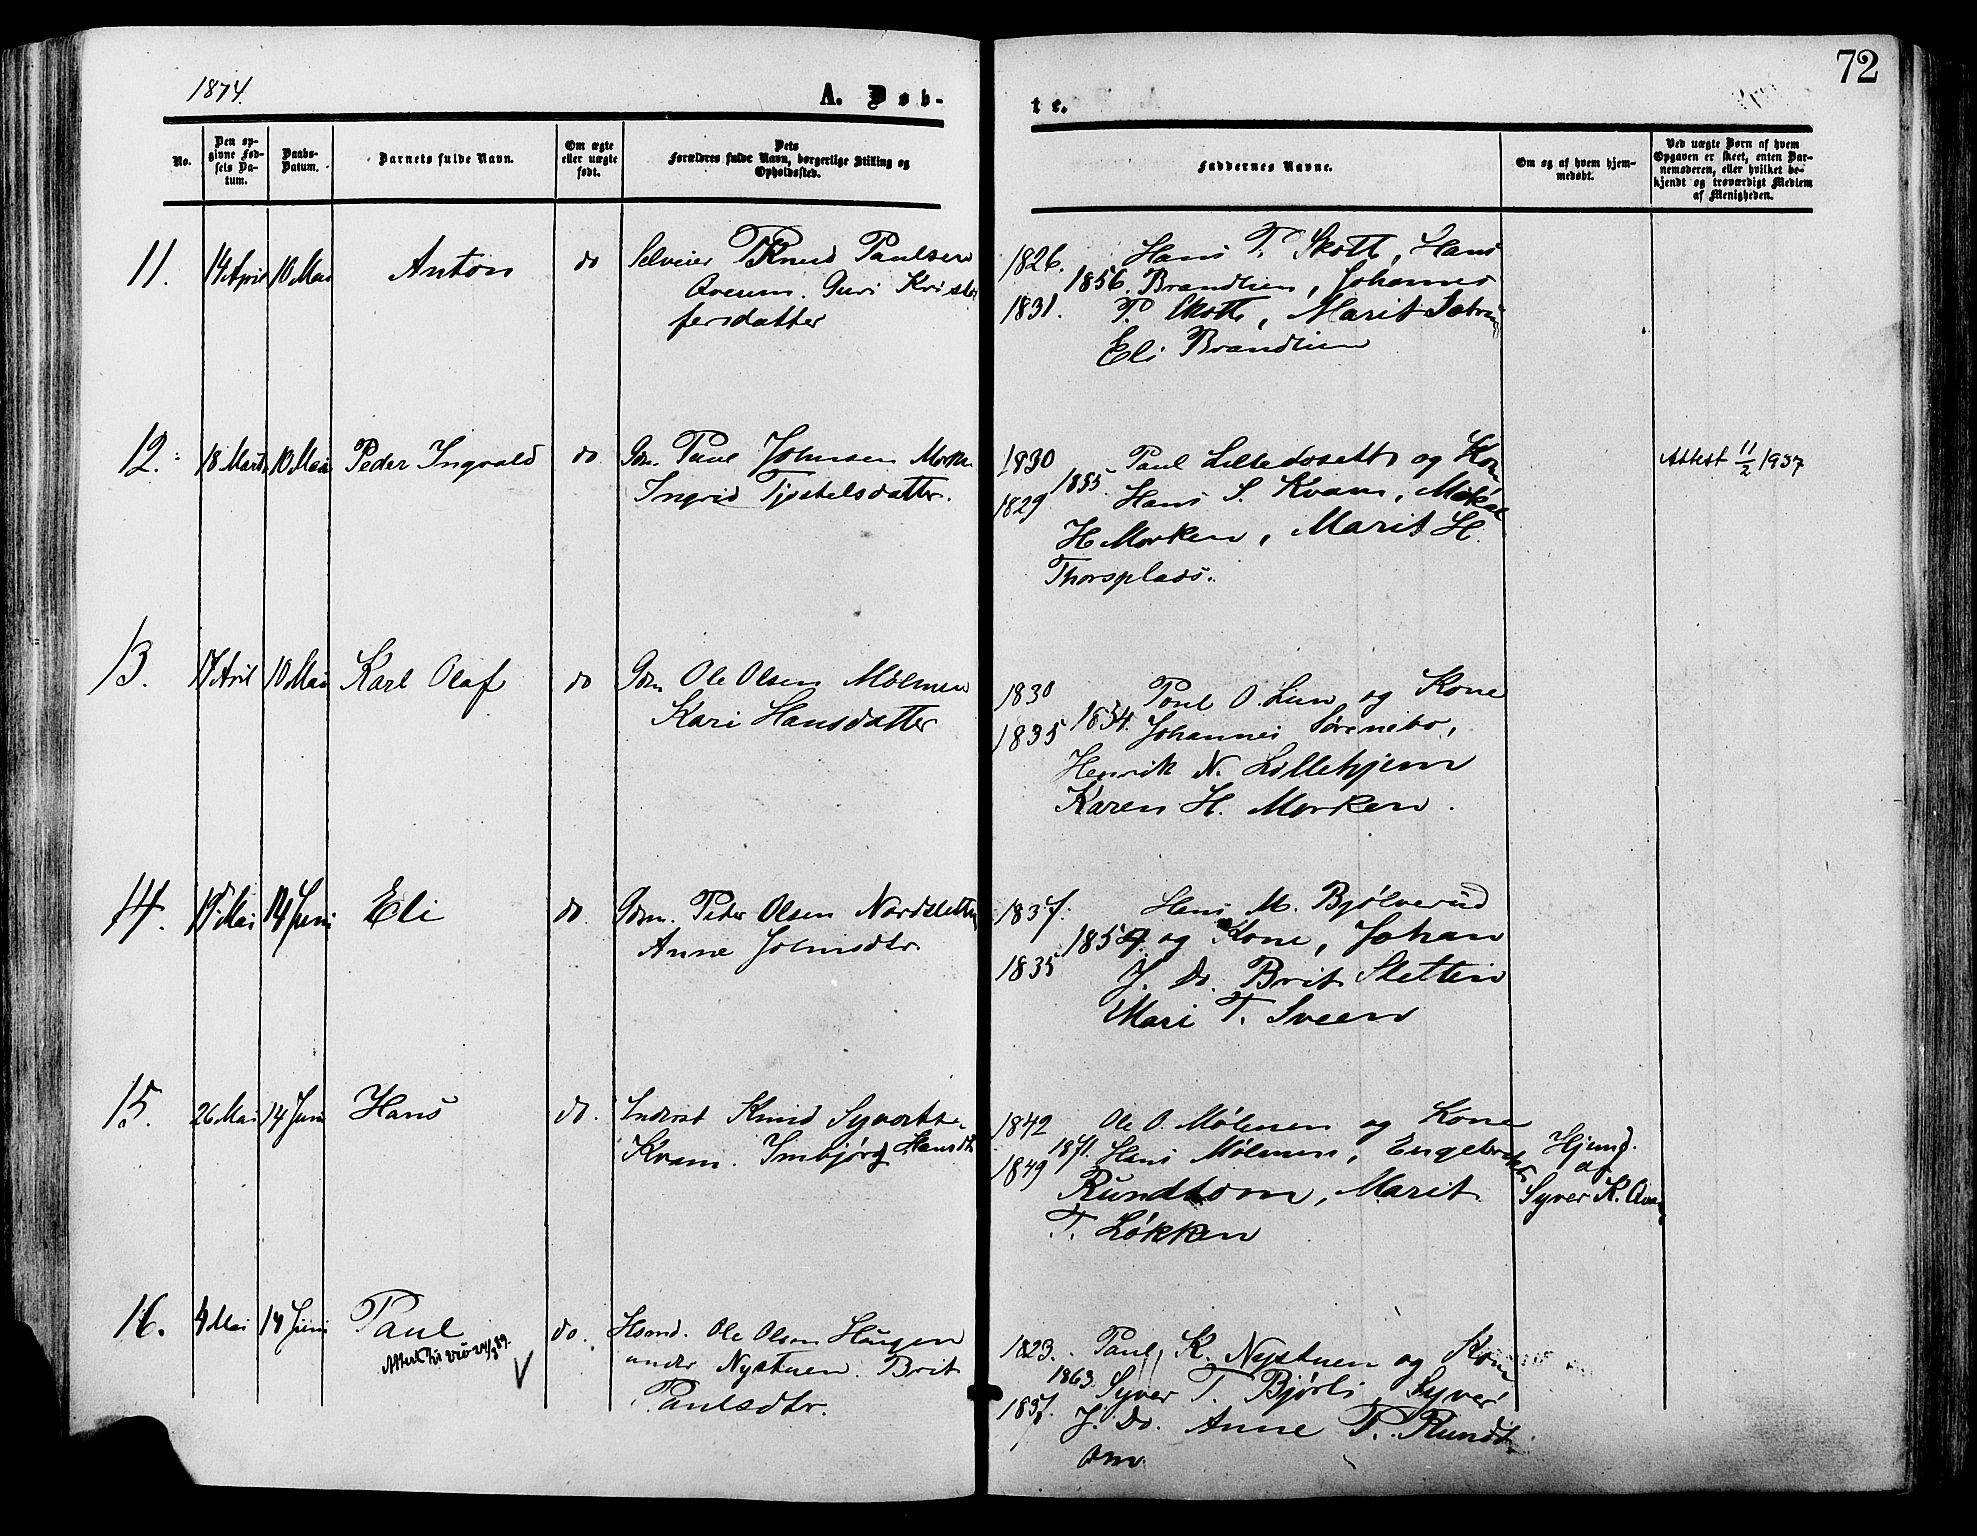 1874.
A. Døb-
te.
72
No.
Den op-
givne Fød-
sels Da-
tum.
Daabs-
Datum.
Barnets fulde Navn.
Om ægte
eller uægte
født.
Dets
Forældres fulde Navn, borgerlige Stilling og
Opholdssted.
Faddernes Navne.
Om og af hvem hjem-
medøbt.
Ved uægte Børn af hvem
Opgaven er skeet, enten Bar-
nemoderen, eller hvilket be-
kjendt og troværdigt Medlem
af Menigheden.
11. 14 April 10 Mai Anton do Selveier Knud Paulsen
Qveum. Guri Kristo
fersdatter
1826. Hans P. Skotte, Hans
1856. Brandlien, Johannes
1831. P. Skotte, Marit
Eli Brandlien
12. 18 Marts 10 Mai Peder Ingvald do Gm. Paul Johnsen Morken
Ingrid Tjøstelsdatter.
1830 Paul Lilledosett og Kone
1855.
1829 Hans S. Kvam, Mikal
H Morken, Marit H.
Thorsplads.
Attest 11/2 1937
13. 17 April 10 Mai Karl Olaf do Gdm Ole Olsen Mølmen
Kari Hansdatter
1830 Poul O. Lien og Kone
1854.
1835 Johannes Sørenebo,
Henrik N. Lillehjem
Karen H. Morken.
14. 19 Mai 14 Juni Eli do. Gdm. Peder Olsen Nordsletten
Anne Johnsdtr.
1837. Hans M. Bjølverud
1854 og Kone, Johan
1835 J. Do. Brit Sletten
Mari T. Sveen
15. 26 Mai 14 Juni Hans do. Inderst Knud Syvertsen
Kvam. Imbjørg Hansdtr
1842 Ole O. Mølmen og Kone
1871. Hans Mølmen, Engebret
1849 Rundtom, Marit
T. Løkken
Hjemd.
af
Syver K.
16. 4 Mai 14 Juni Paul do. Husmd. Ole Olsen Haugen
under Nystuen. Brit
Paulsdtr.
1823. Paul K. Nystuen og Kone
1863. Syver T. Bjørli Syver
1837. J. Do. Anne P. Rundt
om.